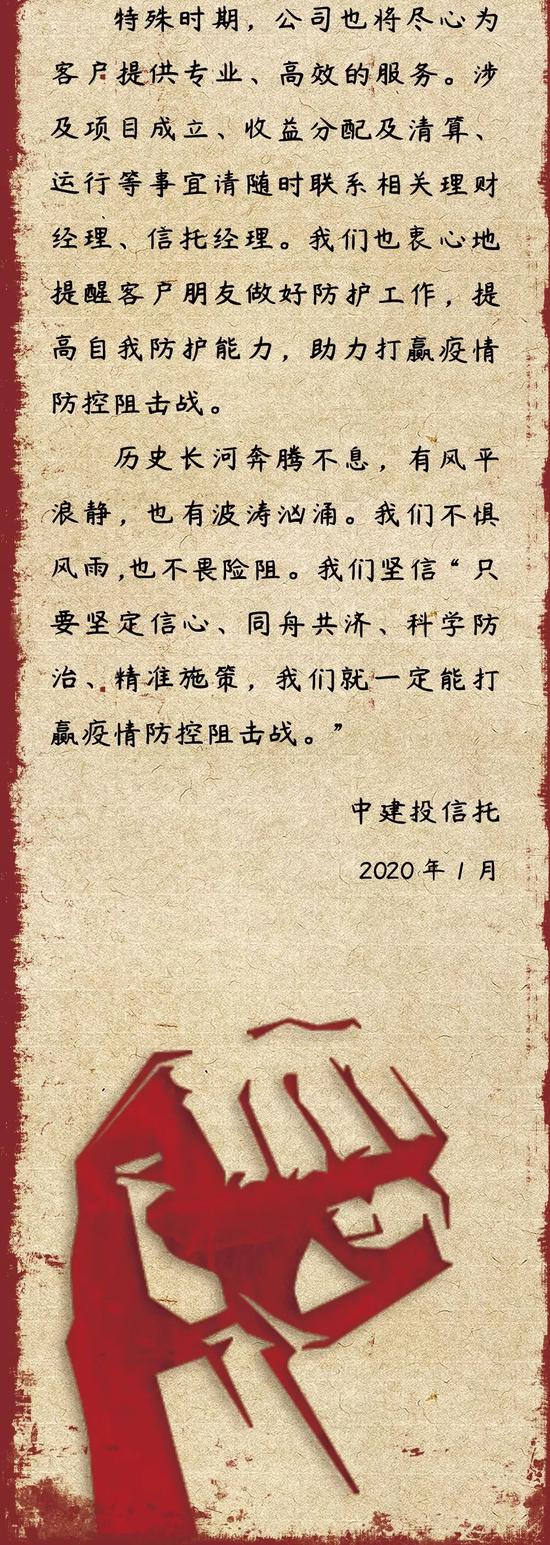 特殊时期，公司也将尽心为
客户提供专业、高效的服务。涉
及项目成立、收益分配及清算、
运行等事宜请随时联系相关理财
经理、信托经理。我们也衷心地
提醒客户朋友做好防护工作，提
高自我防护能力，助力打赢疫情
防控阻击战。
历史长河奔腾不息，有风平
浪静，也有波涛汹涌。我们不惧
风雨,也不畏险阻。我们坚信“只
要坚定信心、同舟共济、科学防
治、精准施策，我们就一定能打
赢疫情防控阻击战。”
中建投信托
2020年1月